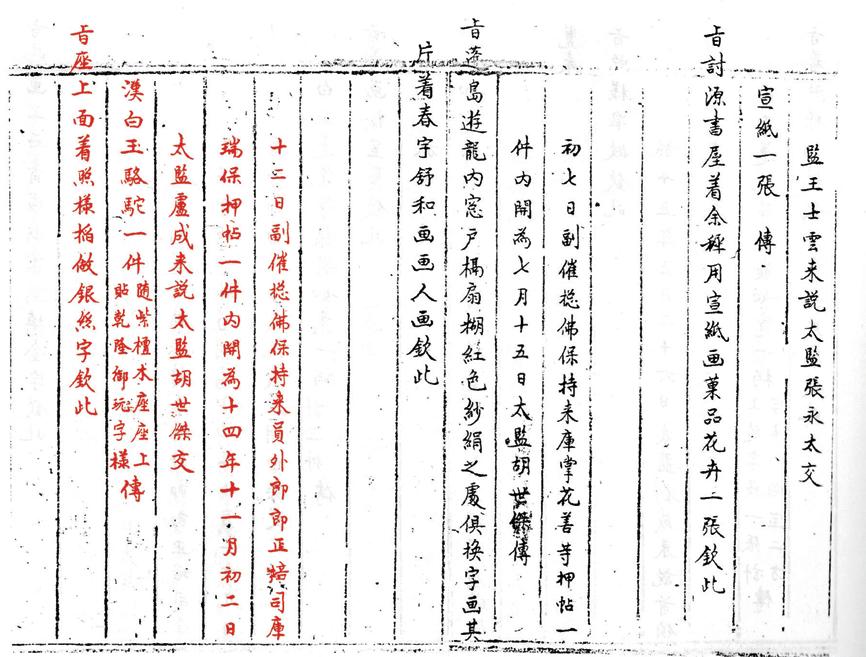 監王士雲来説太監張永太交
宣紙一張　傳
旨討源書屋着余穉用宣紙画菓品花卉一張欽此
初七日副催総佛保持来庫掌花善等押帖一
件内開為七月十五日太監胡世傑傳
旨蓬島遊龍内窓戶槅扇糊紅色紗絹之處俱換字画其
片着春宇舒和画画人画欽此
十二日副催総佛保持来員外郎郎正培司庫
瑞保押帖一件内開為十四年十一月初二日
太監盧成来説太監胡世傑交
漢白玉駱駝一件随紫檀木座座上貼乾隆御玩字様傳
旨座上面着照様掐做銀絲字欽此